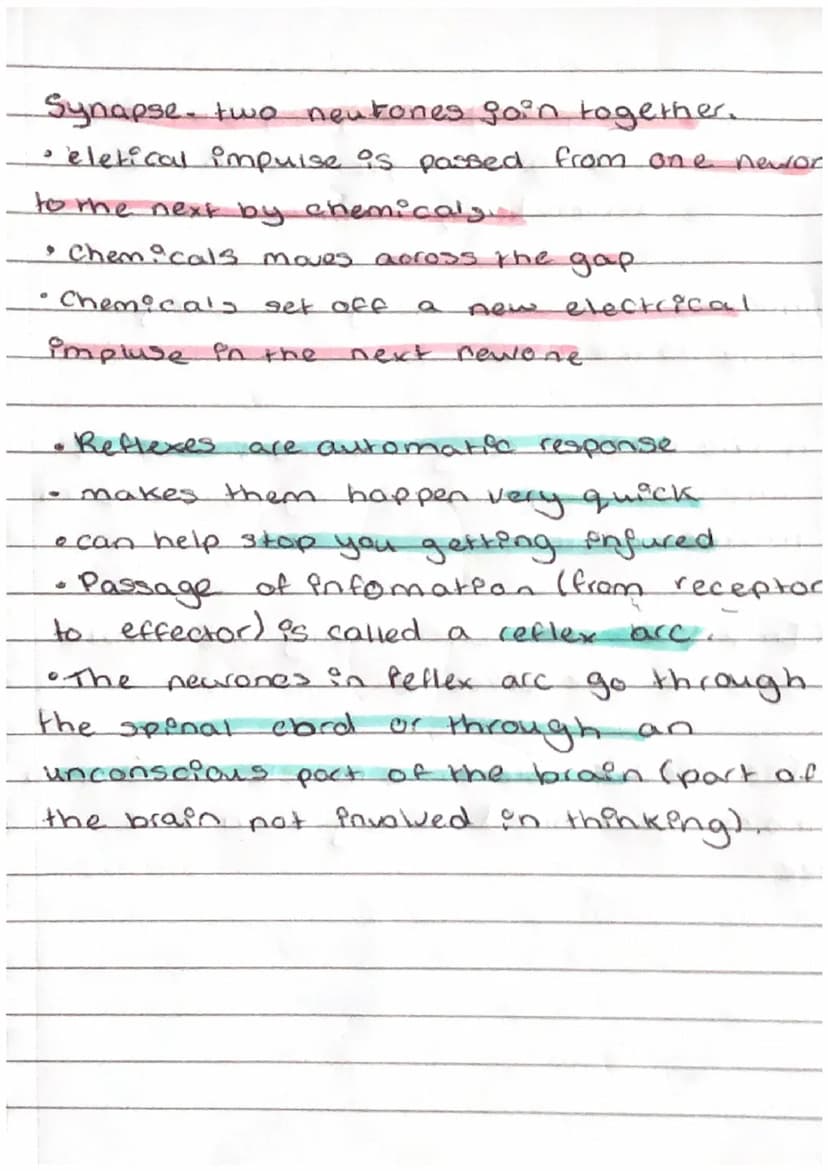 Synapse - two neurones join together.
• eletical impulse is passed from one neuron
to the next by chemicals.
• Chemicals moves across the gap
• Chemicals set off a new electrical
impluse in the next neurone
• Reflexes are automatic response
- makes them happen very quick
• can help stop you getting injured
• Passage of infomation (from receptor
to effector) is called a reflex arc.
• The neurones in Reflex arc go through
the spinal cord or through an
unconscious part of the brain (part of
the brain not involved in thinking).